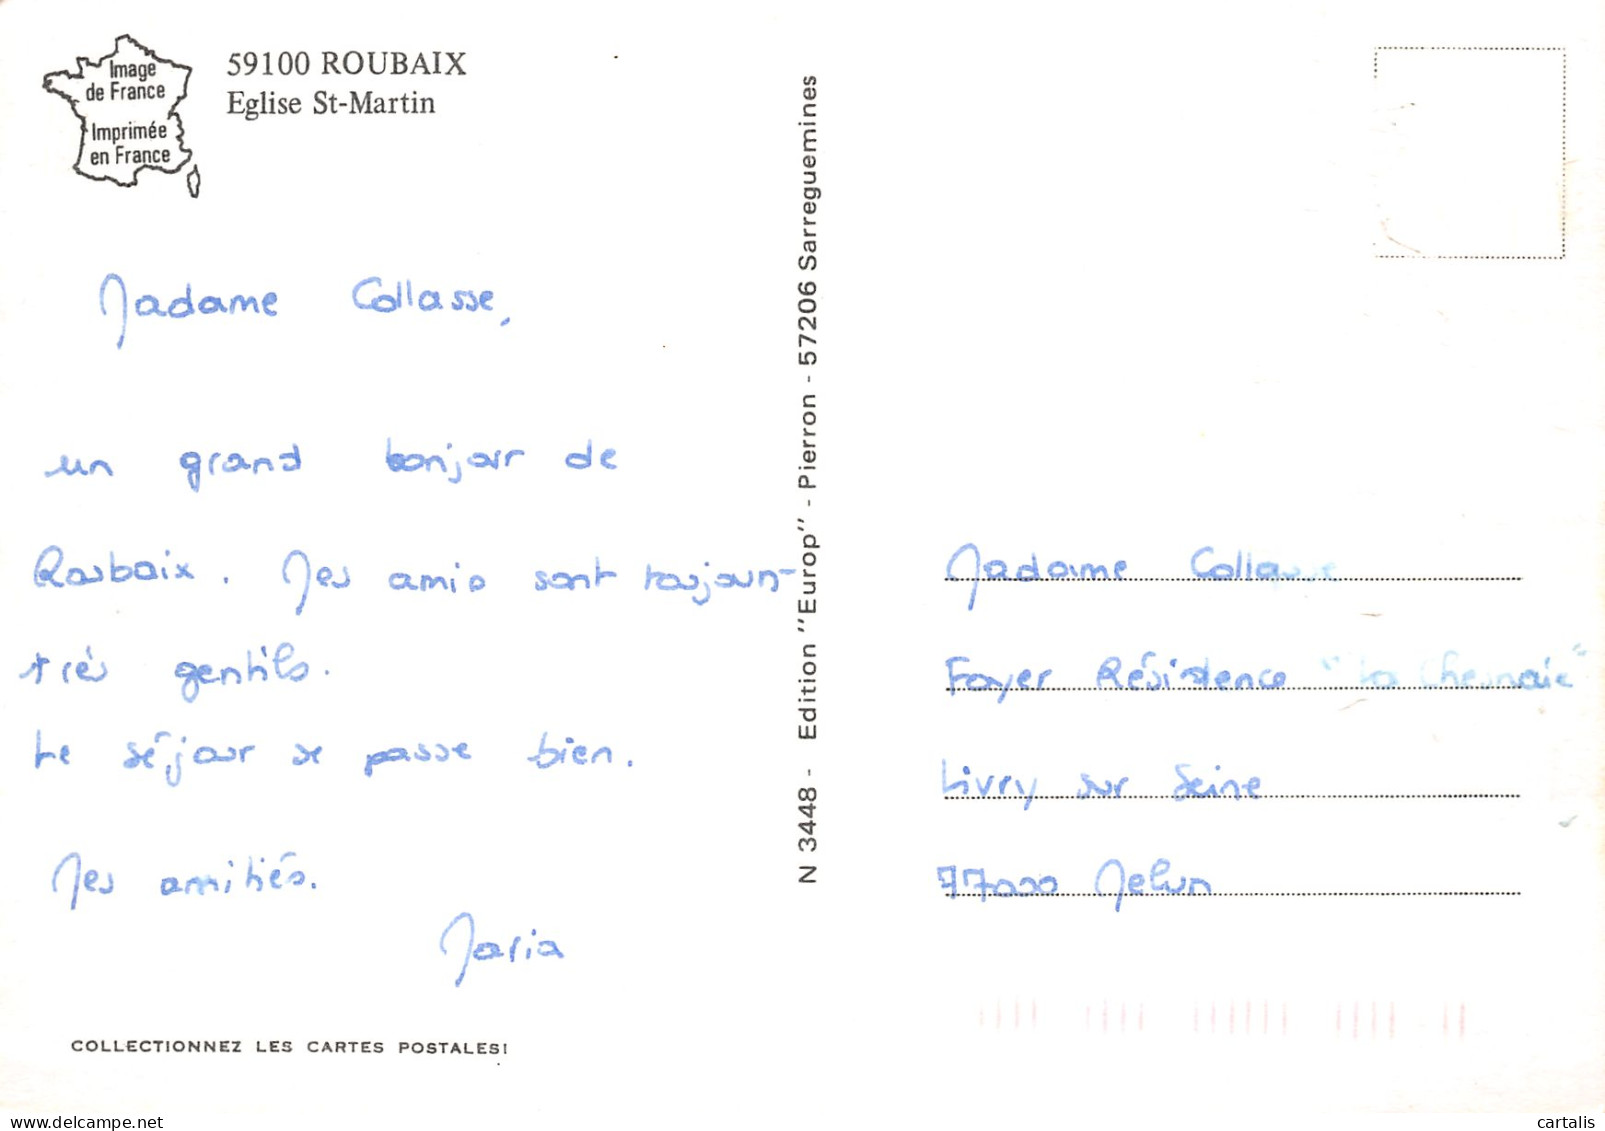 Image
de France
Imprimée
en France
59100 ROUBAIX
Eglise St-Martin
Madame Collasse,
un grand bonjour de
Roubaix. Mes amis sont toujours
très gentils.
Le séjour se passe bien.
Mes amitiés.
Maria
COLLECTIONNEZ LES CARTES POSTALES!
N 3448 - Edition "Europ" - Pierron - 57206 Sarreguemines
Madame Collasse
Foyer Résidence "La Chesnaie"
Livry sur Seine
77000 Melun
cartalis